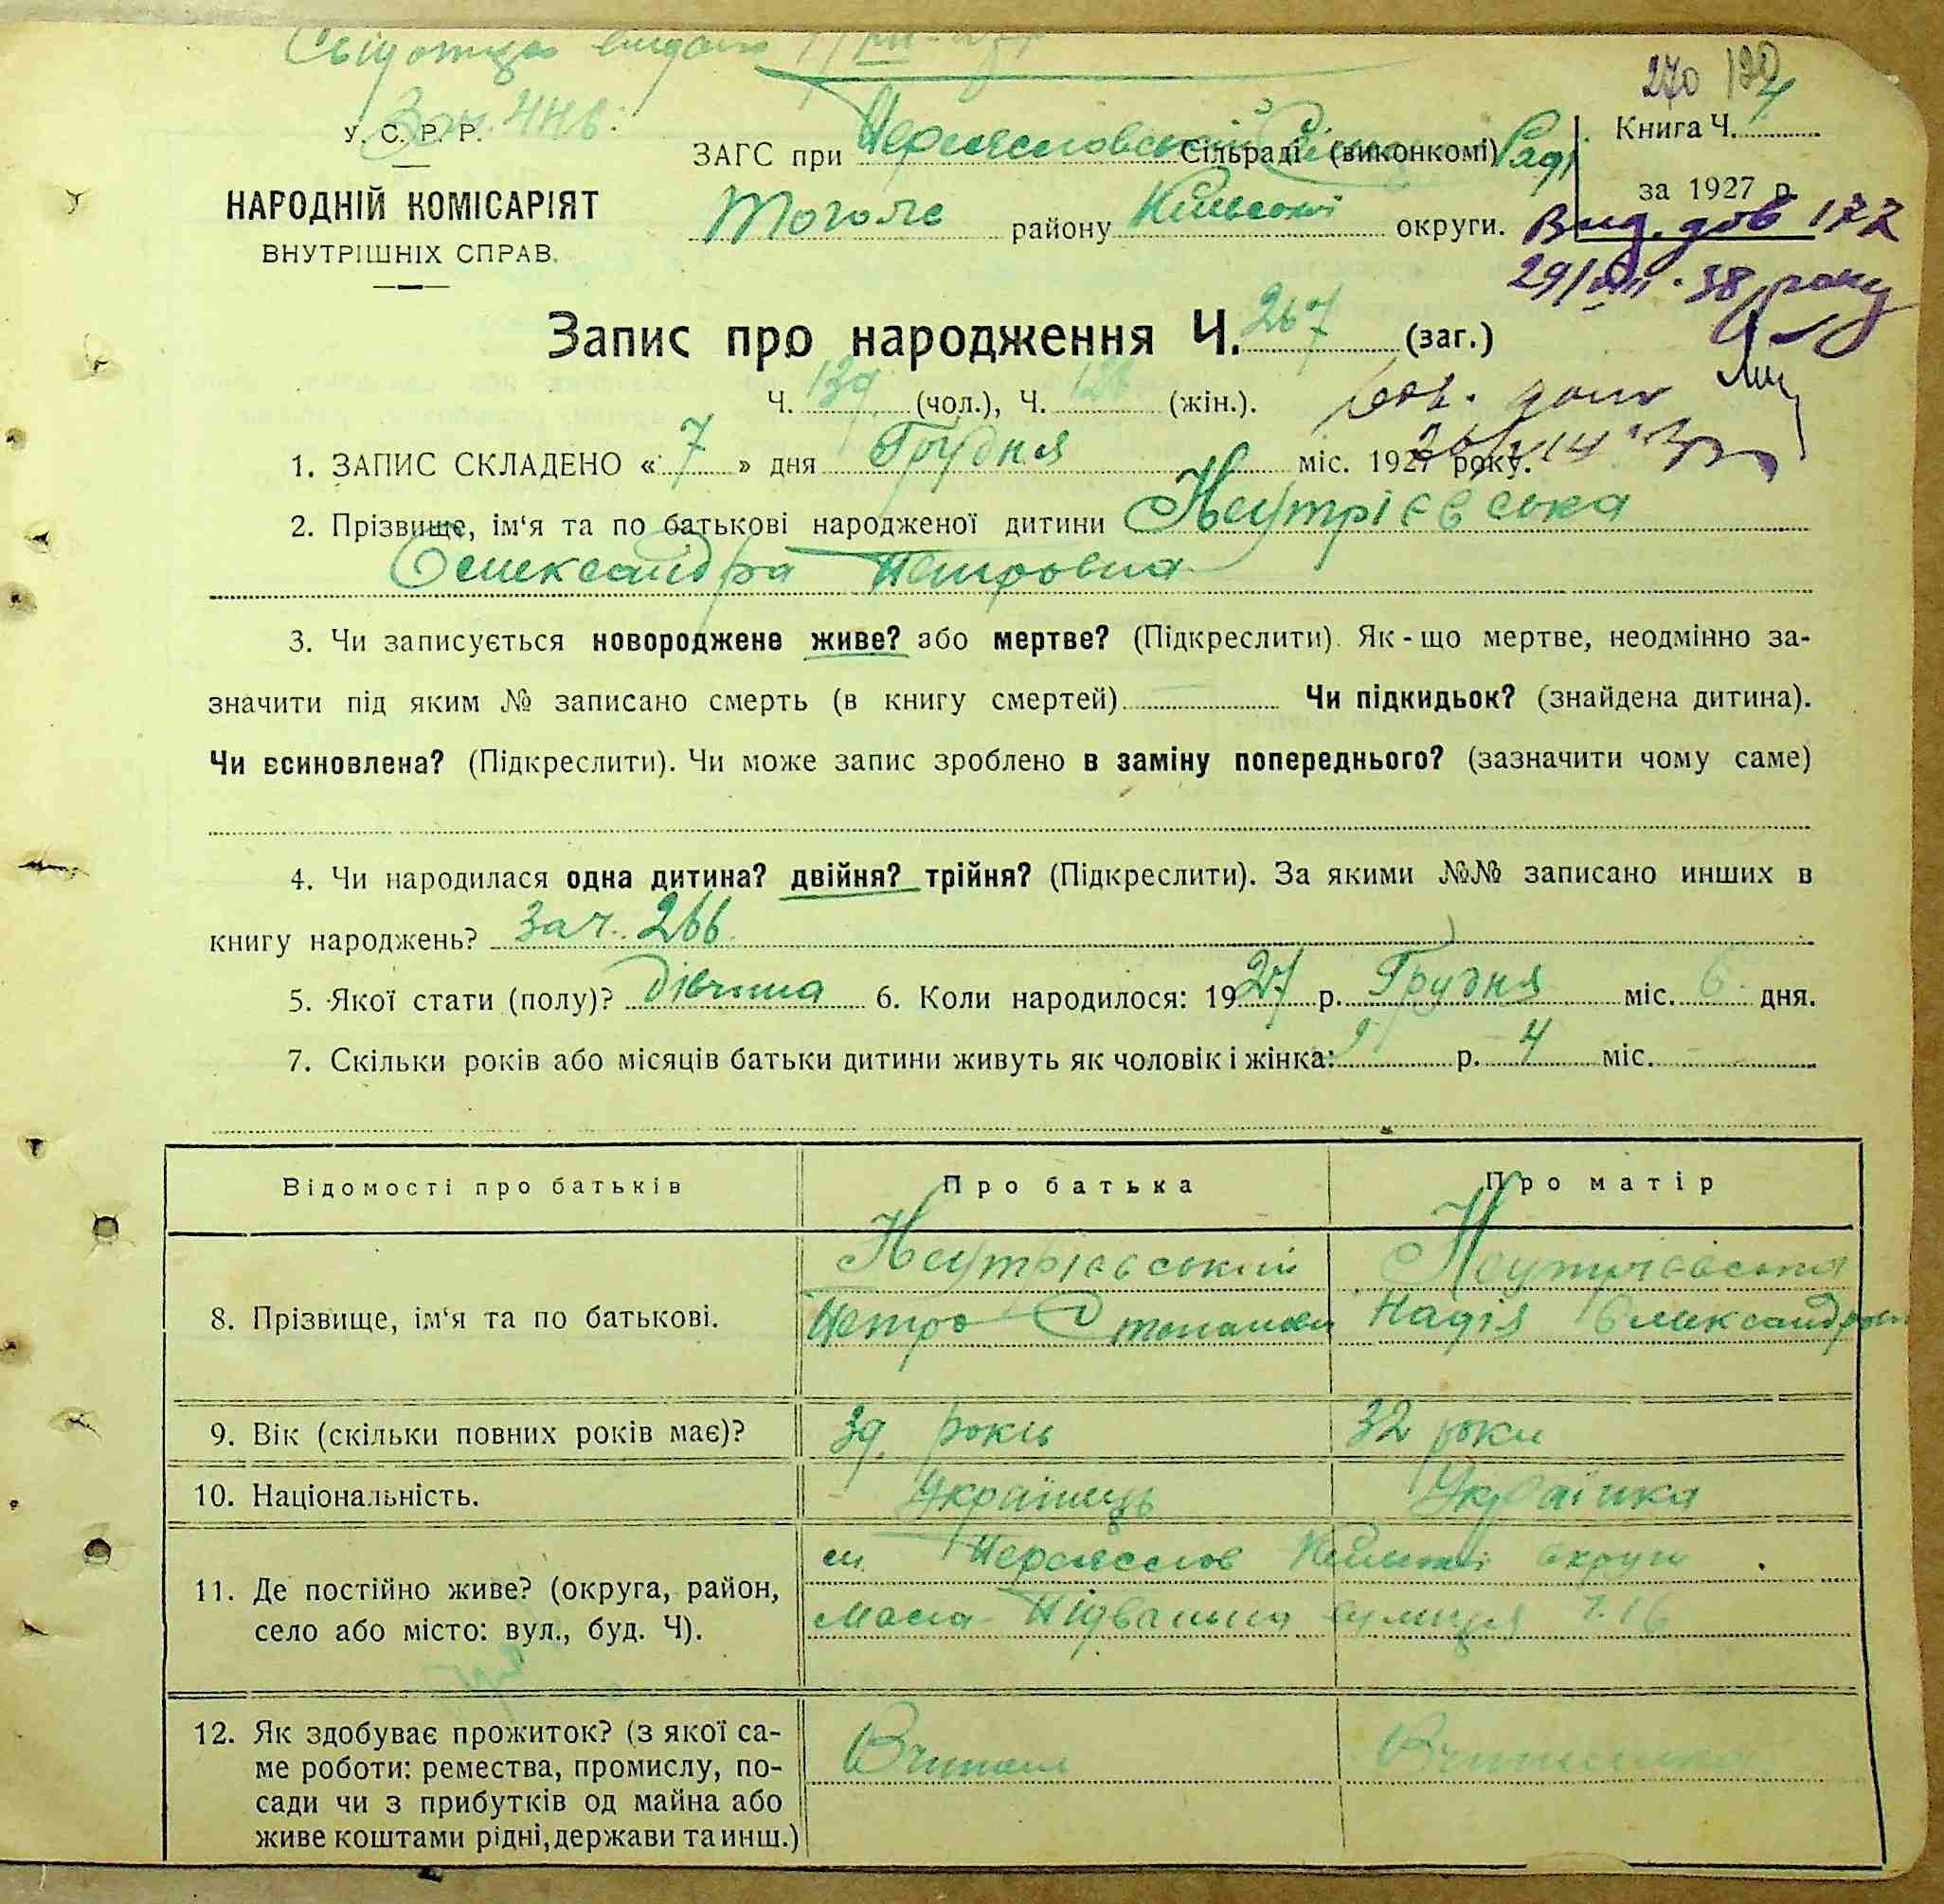 Свідоцтво видано
270
Зач. 446.
У. С. Р. Р.
Книга Ч. 4
ЗАГС при Переяславській Сільраді (виконкомі) Раді
за 1927 р.
НАРОДНІЙ КОМІСАРІЯТ
ВНУТРІШНІХ СПРАВ.
Тогож району Київської округи.
Вид. дов 177
29/VIII-38 року
Запис про народження Ч. 267 (заг.)
Ч. 139 (чол.), Ч. 128 (жін.).
1. ЗАПИС СКЛАДЕНО « 7 » дня Грудня міс. 1927 року.
2. Прізвище, ім‘я та по батькові народженої дитини Неутрієвська
Олександра Петровна
3. Чи записується новороджене живе? або мертве? (Підкреслити). Як-що мертве, неодмінно за-
значити під яким № записано смерть (в книгу смертей) Чи підкидьок? (знайдена дитина).
Чи всиновлена? (Підкреслити). Чи може запис зроблено в заміну попереднього? (зазначити чому саме)
4. Чи народилася одна дитина? двійня? трійня? (Підкреслити). За якими №№ записано инших в
книгу народжень? за ч. 266
5. Якої стати (полу)? дівчина 6. Коли народилося: 1927 р. Грудня міс. 6 дня.
7. Скільки років або місяців батьки дитини живуть як чоловік і жінка: р. 4 міс.
Відомості про батьків Про батька Про матір
8. Прізвище, ім‘я та по батькові.
Неутрієвський Неутрієвська
Петро Степанов Надія Олександров
9. Вік (скільки повних років має)? 39 років 32 роки
10. Національність. Українець Українка
11. Де постійно живе? (округа, район,
село або місто: вул., буд. Ч).
м. Переяслов Київської округи
Мала Підвальна вулиця ч. 16
12. Як здобуває прожиток? (з якої са-
ме роботи: ремества, промислу, по-
сади чи з прибутків од майна або
живе коштами рідні, держави та инш.)
Вчитель Вчителька